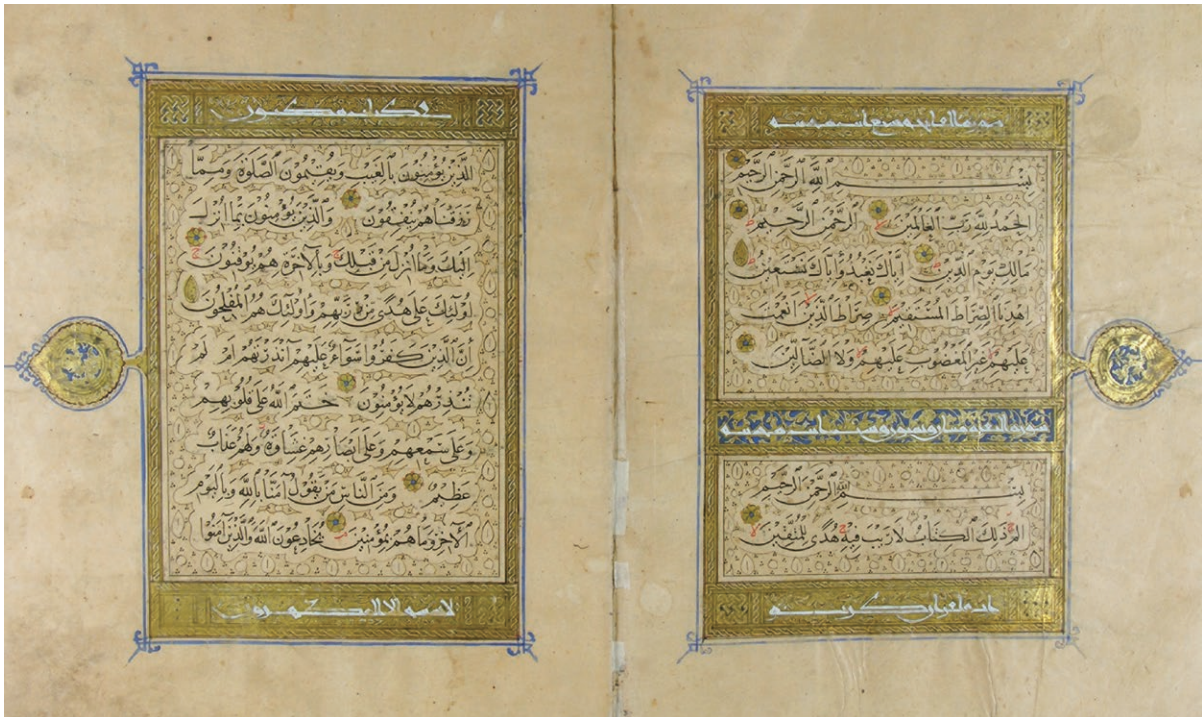 بِسْمِ ٱللَّهِ ٱلرَّحْمٰنِ ٱلرَّحِيْمِ
اَلْحَمْدُ لِلّٰهِ رَبِّ الْعَالَمِيْنَ ٱلرَّحْمٰنِ ٱلرَّحِيْمِ
مَالِكِ يَوْمِ الدِّيْنِ اِيَّاكَ نَعْبُدُ وَاِيَّاكَ نَسْتَعِيْنُ
اِهْدِنَا الصِّرَاطَ الْمُسْتَقِيْمَ صِرَاطَ الَّذِيْنَ اَنْعَمْتَ
عَلَيْهِمْ غَيْرِ الْمَغْضُوْبِ عَلَيْهِمْ وَلَا الضَّآلِّيْنَ
بِسْمِ ٱللَّهِ ٱلرَّحْمٰنِ ٱلرَّحِيْمِ
الٓمّٓ ذٰلِكَ الْكِتَابُ لَا رَيْبَ فِيْهِ هُدًى لِلْمُتَّقِيْنَ
انه لقران كريم
في كتاب مكنون
الَّذِيْنَ يُؤْمِنُوْنَ بِالْغَيْبِ وَيُقِيْمُوْنَ الصَّلٰوةَ وَمِمَّا
رَزَقْنَاهُمْ يُنْفِقُوْنَ وَالَّذِيْنَ يُؤْمِنُوْنَ بِمَا اُنْزِلَ
اِلَيْكَ وَمَا اُنْزِلَ مِنْ قَبْلِكَ وَبِالْاٰخِرَةِ هُمْ يُوْقِنُوْنَ
اُولٰٓئِكَ عَلٰى هُدًى مِنْ رَبِّهِمْ وَاُولٰٓئِكَ هُمُ الْمُفْلِحُوْنَ
اِنَّ الَّذِيْنَ كَفَرُوْا سَوَآءٌ عَلَيْهِمْ اَنْذَرْتَهُمْ اَمْ لَمْ
تُنْذِرْهُمْ لَا يُؤْمِنُوْنَ خَتَمَ اللّٰهُ عَلٰى قُلُوْبِهِمْ
وَعَلٰى سَمْعِهِمْ وَعَلٰى اَبْصَارِهِمْ غِشَاوَةٌ وَلَهُمْ عَذَابٌ
عَظِيْمٌ وَمِنَ النَّاسِ مَنْ يَقُوْلُ اٰمَنَّا بِاللّٰهِ وَبِالْيَوْمِ
الْاٰخِرِ وَمَا هُمْ بِمُؤْمِنِيْنَ يُخَادِعُوْنَ اللّٰهَ وَالَّذِيْنَ اٰمَنُوْا
لا يمسه الا المطهرون